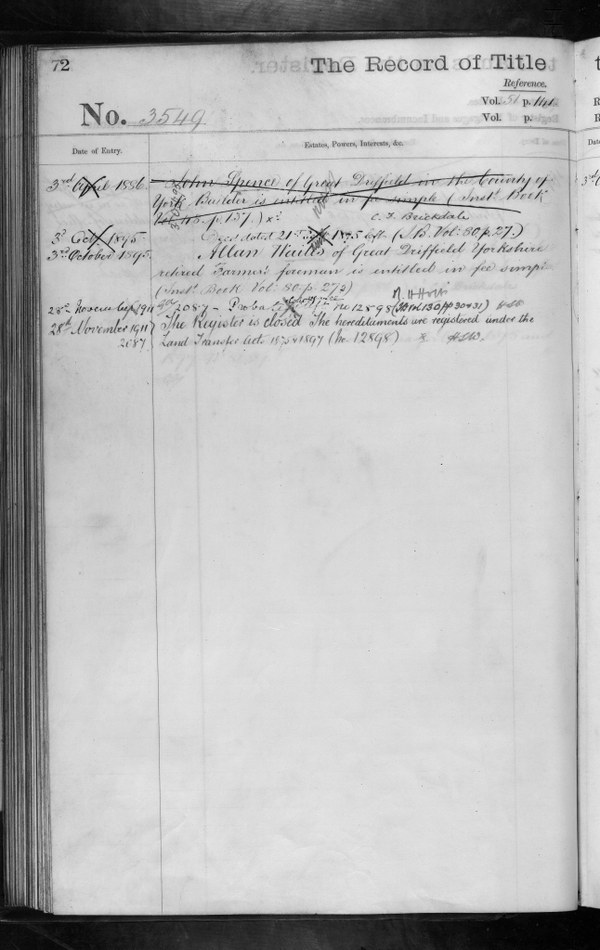 72
The Record of Title
Reference.
Vol. 51 p. 141
No. 3549
Vol. p.
Date of Entry.
Estates, Powers, Interests, &c.
3rd April 1886. John Spence of Great Driffield in the County of
York Builder is entitled in fee simple (Inst. Book
Vol 43. p. 157.)
C. F. Brickdale
3d Oct 1895 Deed dated 21st 1895 left (I.B. Vol: 80 p. 27.)
3rd October 1895. Allan Waites of Great Driffield Yorkshire
retired Farmer's foreman is entitled in fee simple
(Inst. Book Vol. 80. p. 272)
28th November 1911 2087 - Probate No 12898 (IB Vol 130 pp 30+31)
28th November 1911 The Register is closed The hereditaments are registered under the
2087 Land Transfer Acts 1875 & 1897 (No. 12898)